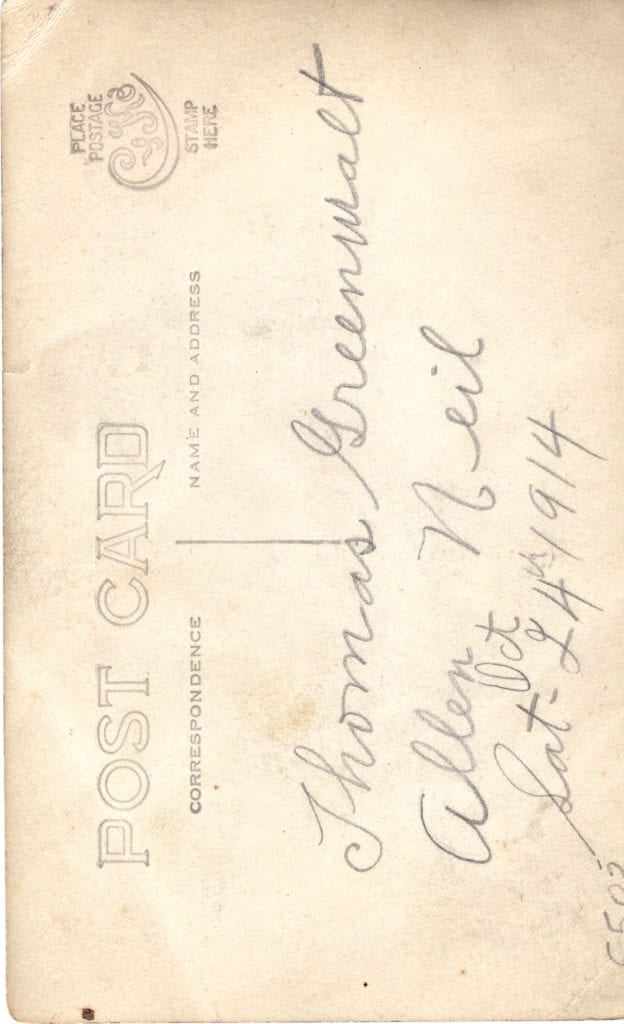 PLACE
POSTAGE
STAMP
HERE
POST CARD
CORRESPONDENCE
NAME AND ADDRESS
Thomas Greenwalt
Allen Neil
Oct
Sat - 24th 1914